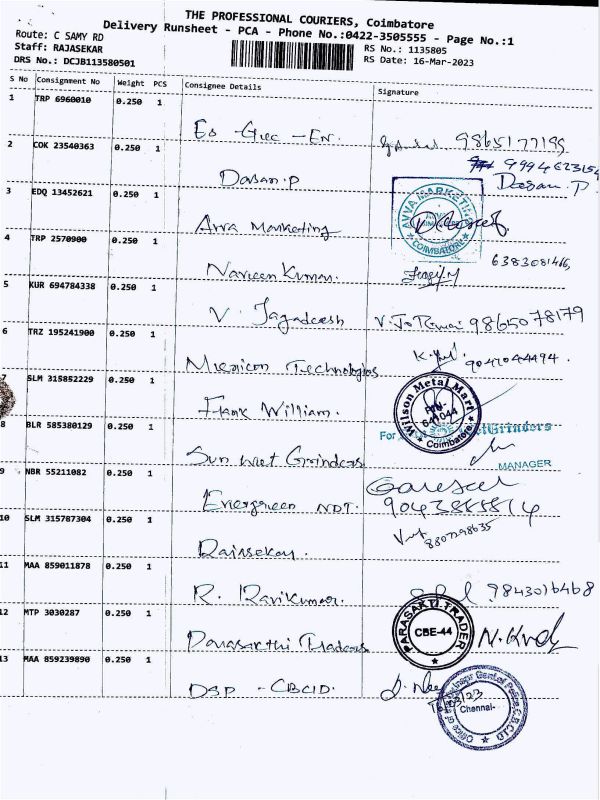 THE PROFESSIONAL COURIERS, Coimbatore
Delivery Runsheet - PCA - Phone No.:0422-3505555 - Page No.:1
Route: C SAMY RD
Staff: RAJASEKAR
RS No.: 1135805
DRS No.: DCJB113580501
RS Date: 16-Mar-2023
S No Consignment No Weight PCS Consignee Details Signature
1 TRP 6960010 0.250 1
9865177195
2 COK 23540363 0.250 1
Dasan.P
Dasan.P
3 EDQ 13452621 0.250 1
Avva Marketing
AVVA MARKETING
COIMBATORE
4 TRP 2570900 0.250 1
Naveen Kumar.
6383081466
5 KUR 694784338 0.250 1
V. Jagadeesh
98650 78179
6 TRZ 195241900 0.250 1
Micricon Technologies
9047044494.
7 SLM 315852229 0.250 1
Frank William.
Wilson Metal Mart
641044
Coimbatore
8 BLR 585380129 0.250 1
For
Grinders
Sun Wet Grinders
MANAGER
9 NBR 55211082 0.250 1
Evergreen NDT.
10 SLM 315787304 0.250 1
8807298635
11 MAA 859011878 0.250 1
R. Ravikumar.
9843016468
12 MTP 3030287 0.250 1
Parasakthi Traders
PARASAKTI TRADER
CBE-44
13 MAA 859239890 0.250 1
DSP - CBCID.
Chennai-